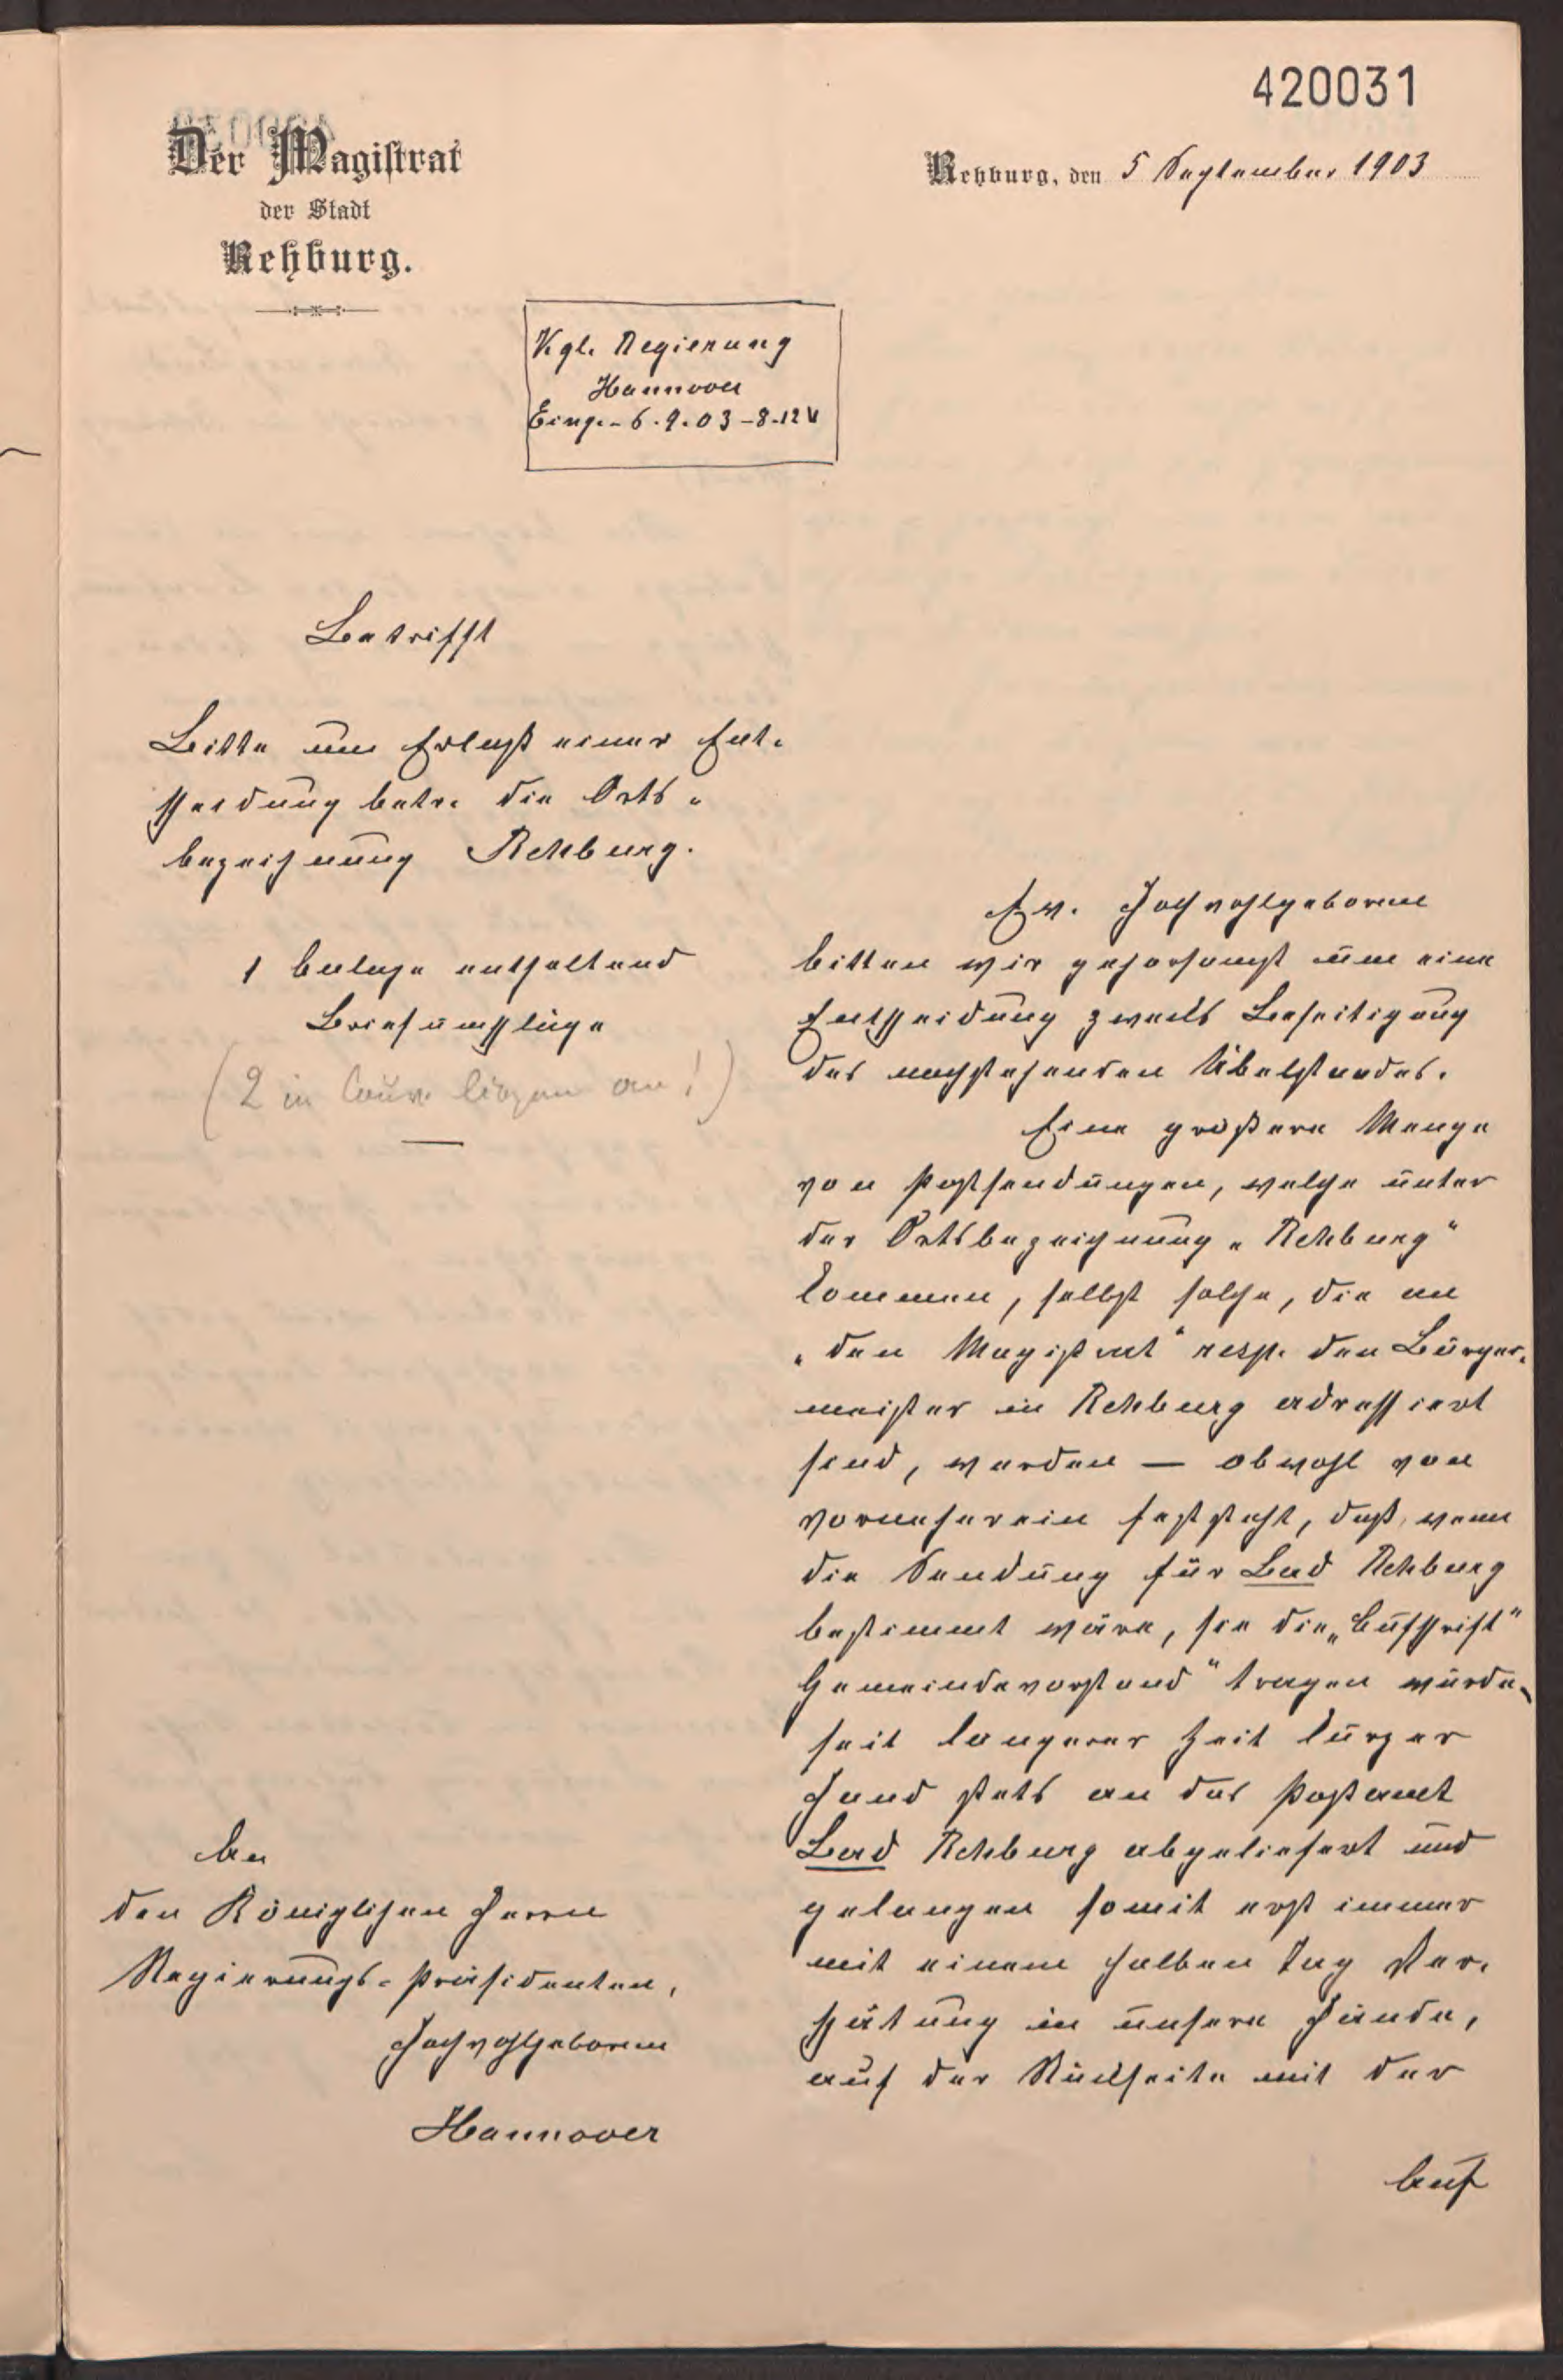 420031
Der Magistrat
der Stadt
Rehburg.
Rehburg, den 5 September 1903
Kgl. Regierung
Hannover
Eing. - 6.9.03 - 8-12 V
Betrifft
Bitte um Erlaß einer Ent-
scheidung betr. die Orts-
bezeichnung Rehburg.
1 Anlage enthaltend
Briefumschläge
(2 in Couv. liegen an!)
Ew. Hochwohlgeboren
bitten wir gehorsamst um eine
Entscheidung zwecks Beseitigung
des nachstehenden Übelstandes.
Eine größere Menge
von Postsendungen, welche unter
der Ortsbezeichnung „Rehburg“
kommen, selbst solche, die an
„den Magistrat“ resp. den Bürger-
meister in Rehburg adressiert
sind, werden — obwohl von
vorneherein feststeht, daß, wenn
die Sendung für Bad Rehburg
bestimmt wäre, sie die „Aufschrift“
Gemeindevorstand“ tragen würde,
seit längerer Zeit kurzer
Hand stets an das Postamt
Bad Rehburg abgeliefert und
gelangen somit erst immer
mit einem halben Tag Ver-
spätung in unsere Hände,
auf der Rückseite mit der
Auf
An
den Königlichen Herrn
Regierungs-Präsidenten,
Hochwohlgeboren
Hannover